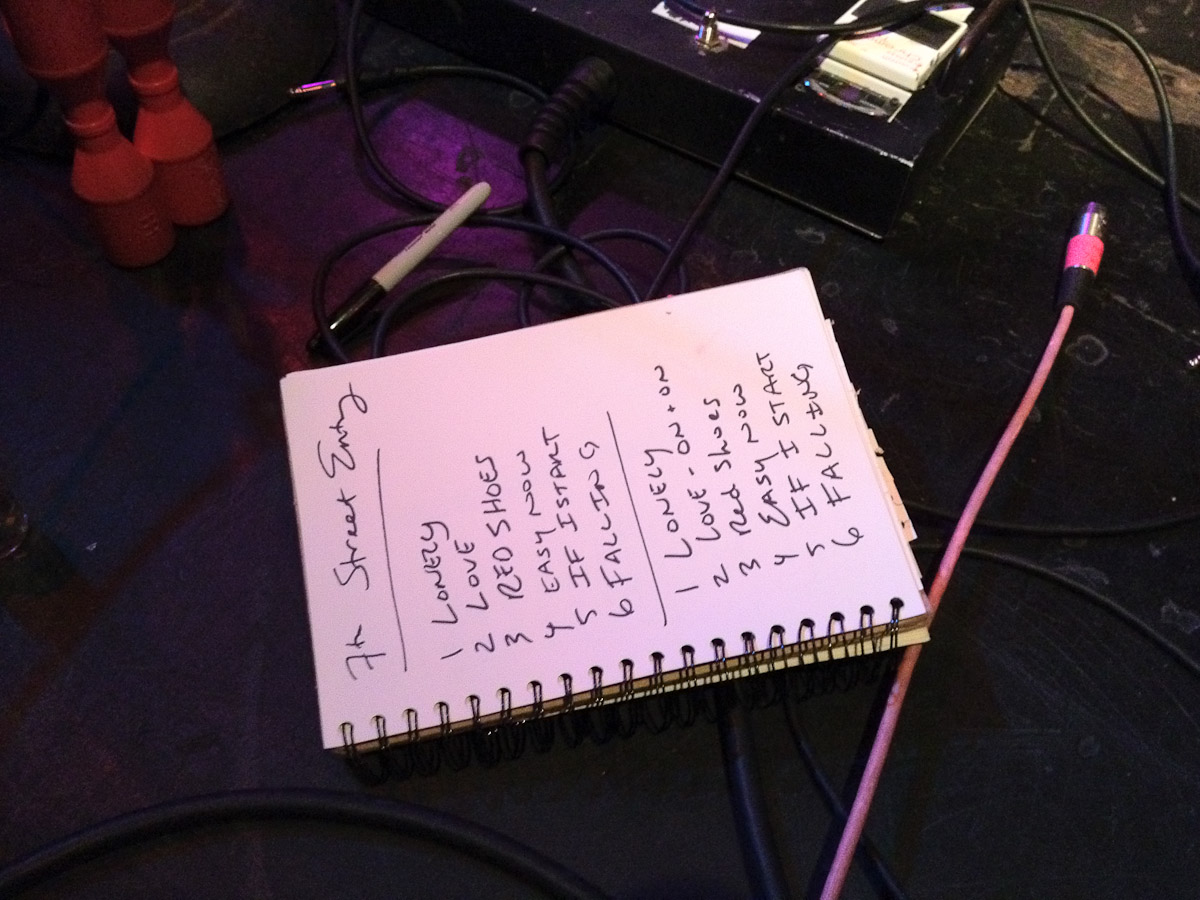 7th Street Entry
1 LONELY
2 LOVE
3 RED SHOES
4 EASY NOW
5 IF I START
6 FALLING
1 LONELY
2 LOVE - ON + ON
3 Red Shoes
4 EASY NOW
5 IF I START
6 FALLING